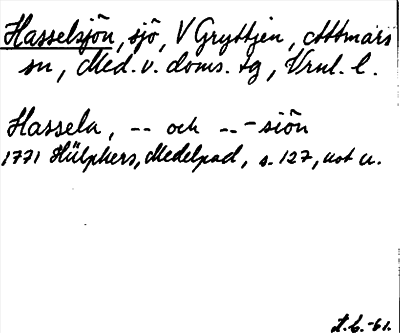 Hasselsjön, sjö, V Gryttjen, Attmars
sn, Med. v. doms. tg, Vrnl. l.
Hassela, -- och -- -siön
1771 Hülphers, Medelpad, s. 127, not u.
L.L. -61.